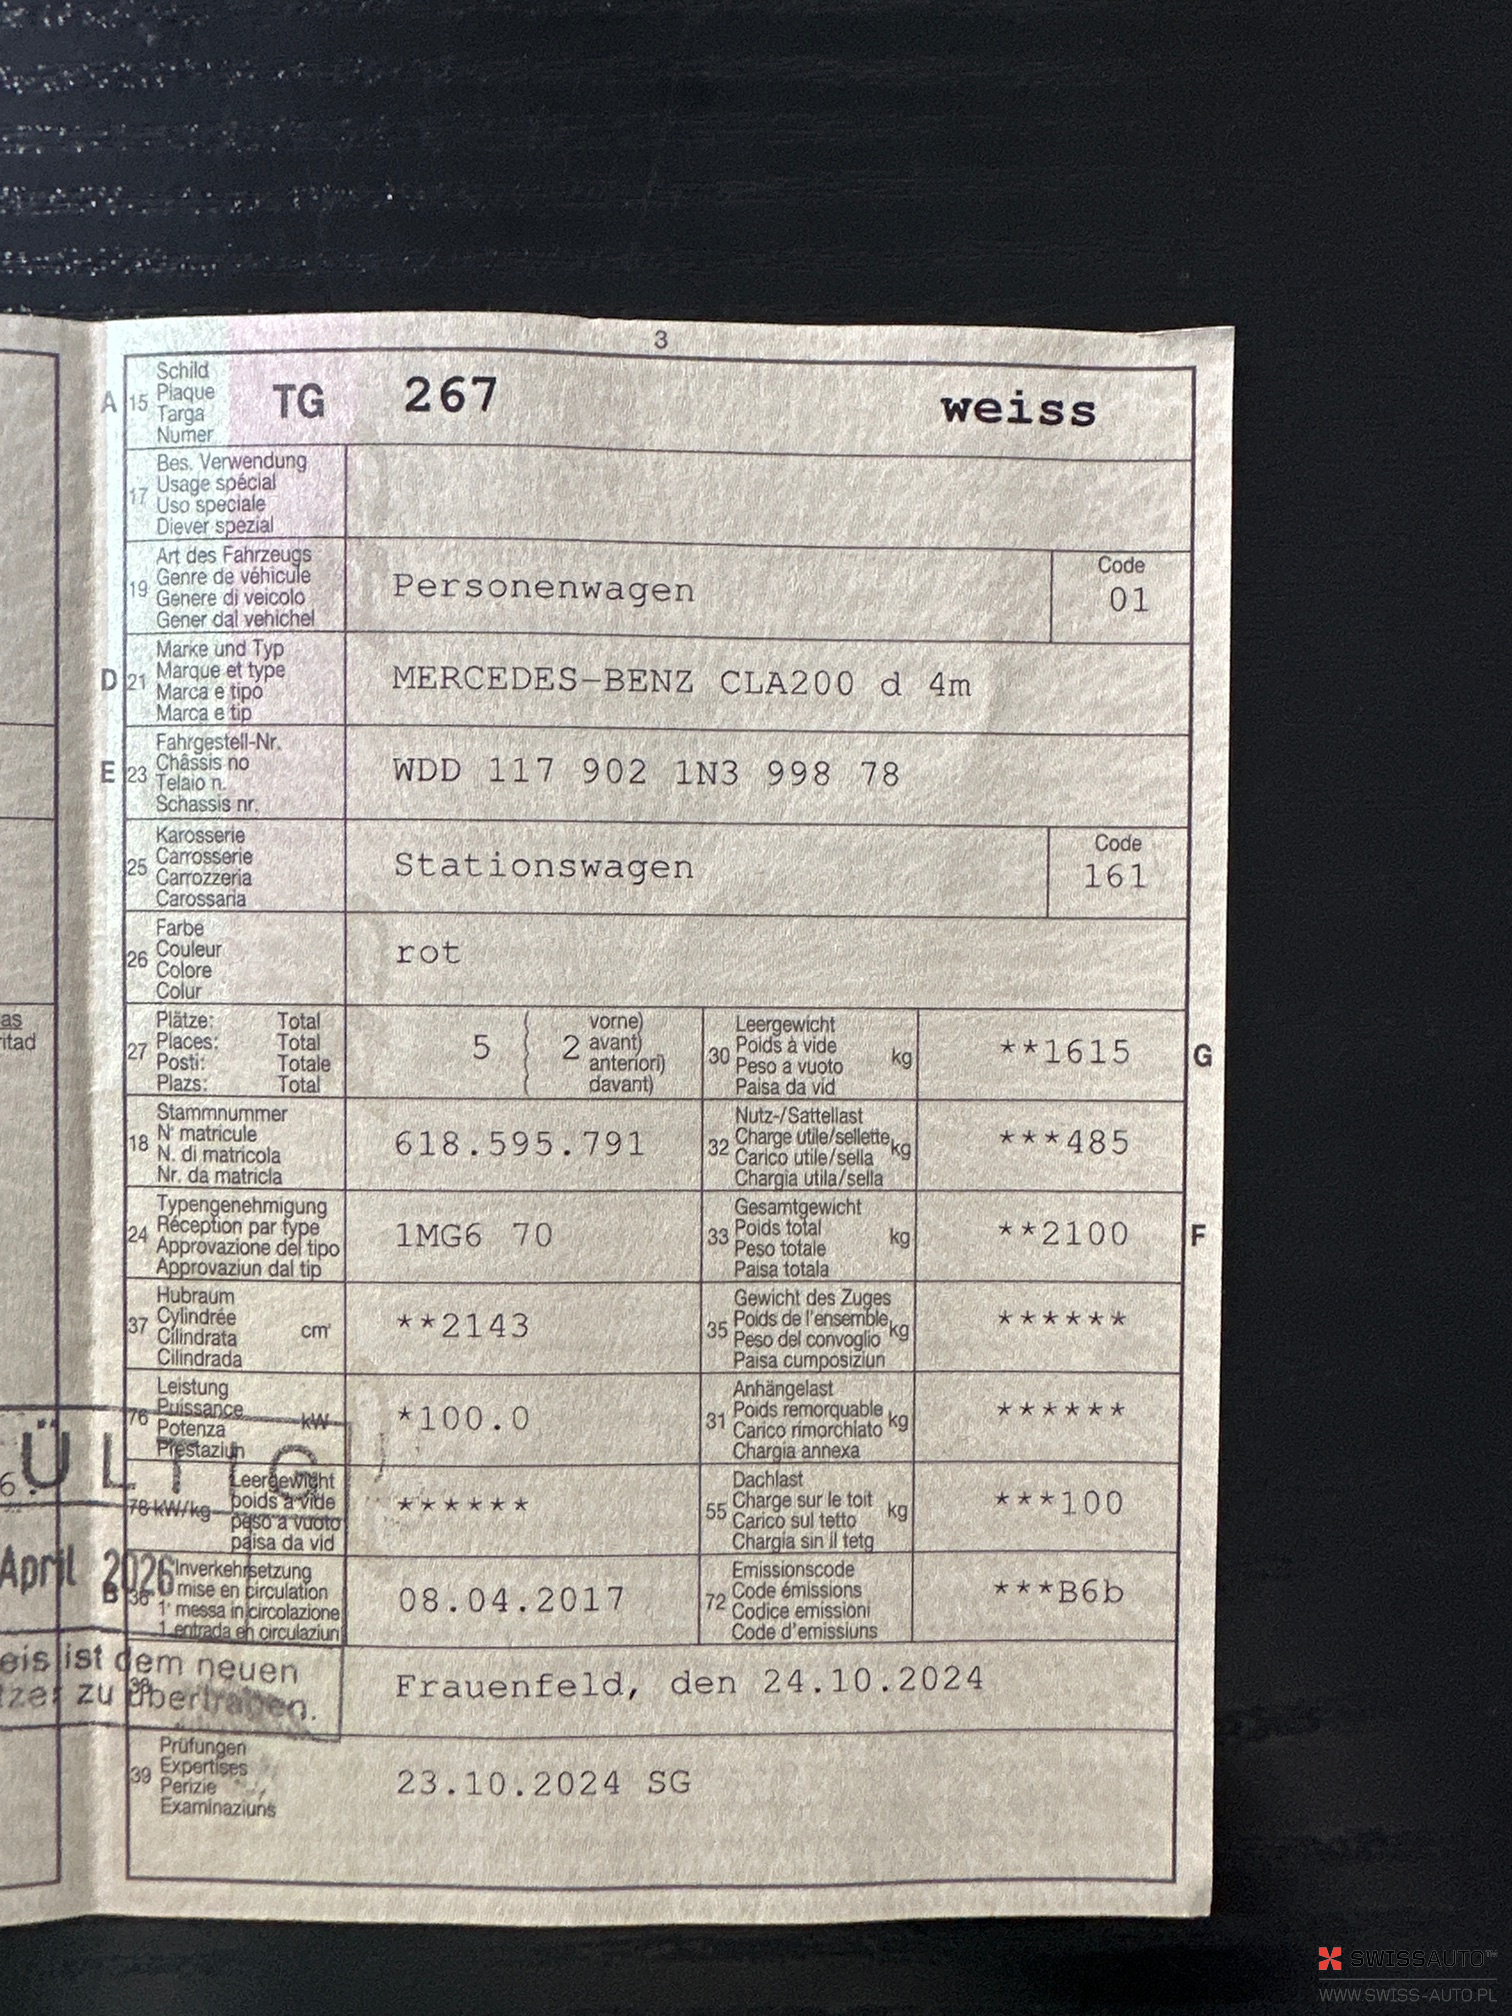 3
A 15 Schild Plaque Targa Numer TG 267 weiss
17 Bes. Verwendung
Usage spécial
Uso speciale
Diever spezial
19 Art des Fahrzeugs
Genre de véhicule
Genere di veicolo
Gener dal vehichel
Personenwagen
Code
01
D 21 Marke und Typ
Marque et type
Marca e tipo
Marca e tip
MERCEDES-BENZ CLA200 d 4m
E 23 Fahrgestell-Nr.
Châssis no
Telaio n.
Schassis nr.
WDD 117 902 1N3 998 78
25 Karosserie
Carrosserie
Carrozzeria
Carossaria
Stationswagen
Code
161
26 Farbe
Couleur
Colore
Colur
rot
as
ritad
27 Plätze: Total
Places: Total
Posti: Totale
Plazs: Total
5 ( 2 vorne)
avant)
anteriori)
davant)
30 Leergewicht
Poids à vide
Peso a vuoto
Paisa da vid
kg
**1615
G
18 Stammnummer
N° matricule
N. di matricola
Nr. da matricla
618.595.791
32 Nutz-/Sattellast
Charge utile/sellette
Carico utile/sella
Chargia utila/sella
kg
***485
24 Typengenehmigung
Réception par type
Approvazione del tipo
Approvaziun dal tip
1MG6 70
33 Gesamtgewicht
Poids total
Peso totale
Paisa totala
kg
**2100
F
37 Hubraum
Cylindrée
Cilindrata
Cilindrada
cm³
**2143
35 Gewicht des Zuges
Poids de l'ensemble
Peso del convoglio
Paisa cumposiziun
kg
******
76 Leistung
Puissance
Potenza
Prestaziun
kW
*100.0
31 Anhängelast
Poids remorquable
Carico rimorchiato
Chargia annexa
kg
******
6.
ÜLTIG
78 kW/kg Leergewicht
poids à vide
peso a vuoto
paisa da vid
******
55 Dachlast
Charge sur le toit
Carico sul tetto
Chargia sin il tetg
kg
***100
April 2026
B 36 Inverkehrsetzung
mise en circulation
1ª messa in circolazione
1. entrada en circulaziun
08.04.2017
72 Emissionscode
Code émissions
Codice emissioni
Code d'emissiuns
***B6b
eis ist dem neuen
tzer zu übertragen.
38
Frauenfeld, den 24.10.2024
39 Prüfungen
Expertises
Perizie
Examinaziuns
23.10.2024 SG
SWISSAUTO™
WWW.SWISS-AUTO.PL